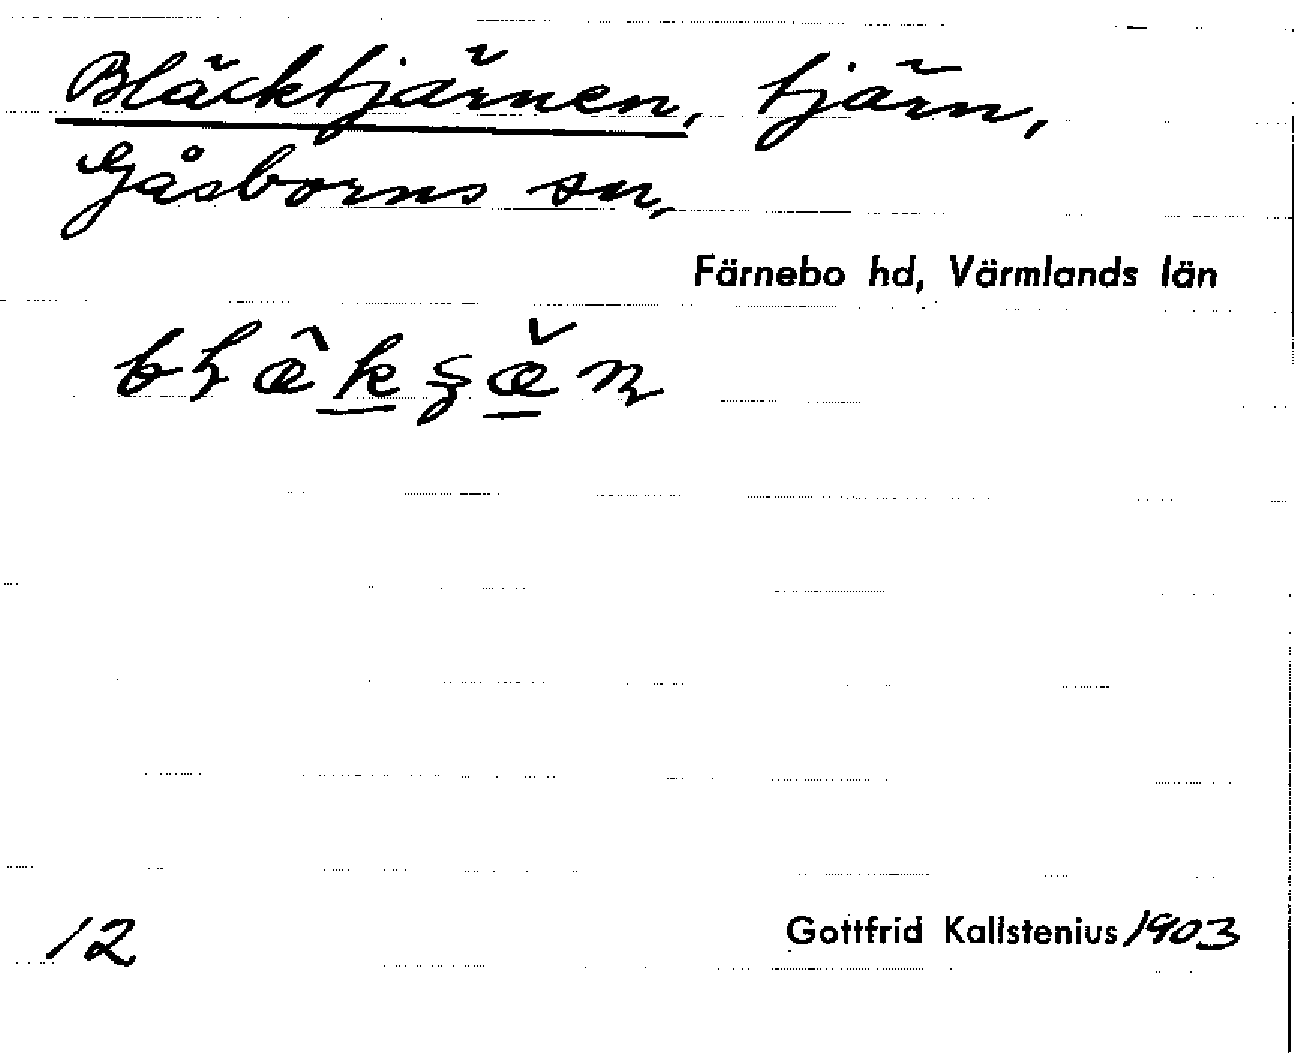 Bläcktjärnen, tjärn,
Gåsborns sn,
Färnebo hd, Värmlands län
12
Gottfrid Kallstenius 1903